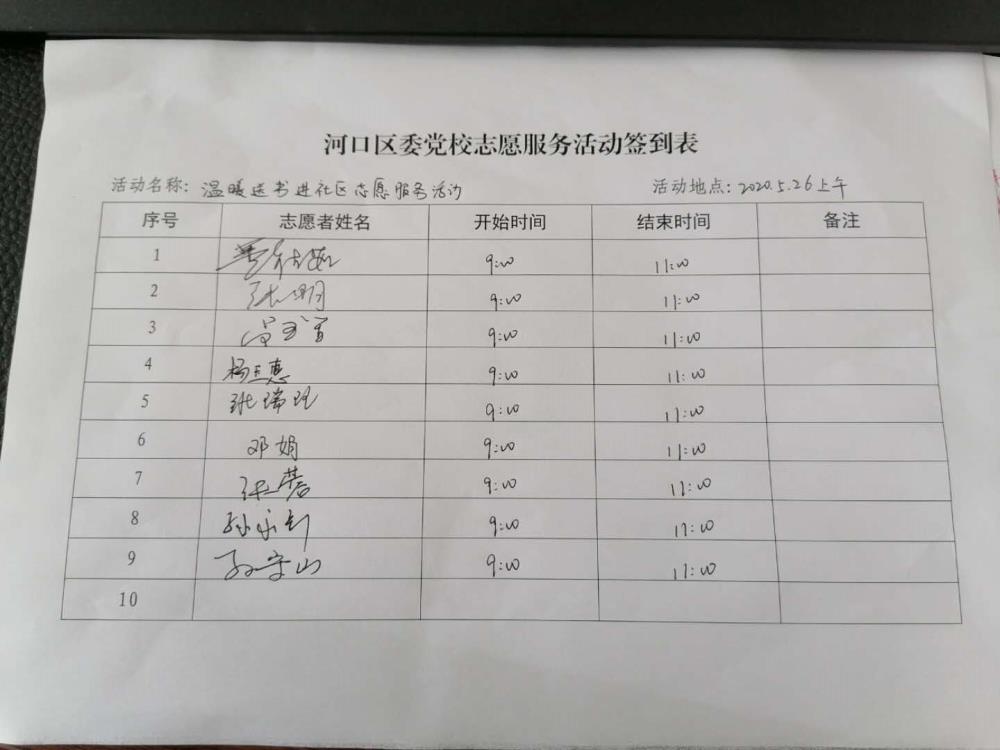 河口区委党校志愿服务活动签到表
活动名称：温暖送书进社区志愿服务活动 活动地点：2020.5.26上午
序号 志愿者姓名 开始时间 结束时间 备注
1 9:00 11:00
2 张明 9:00 11:00
3 9:00 11:00
4 杨玉惠 9:00 11:00
5 张瑞现 9:00 11:00
6 邓娟 9:00 11:00
7 张蓉 9:00 11:00
8 9:00 11:00
9 孙守山 9:00 11:00
10